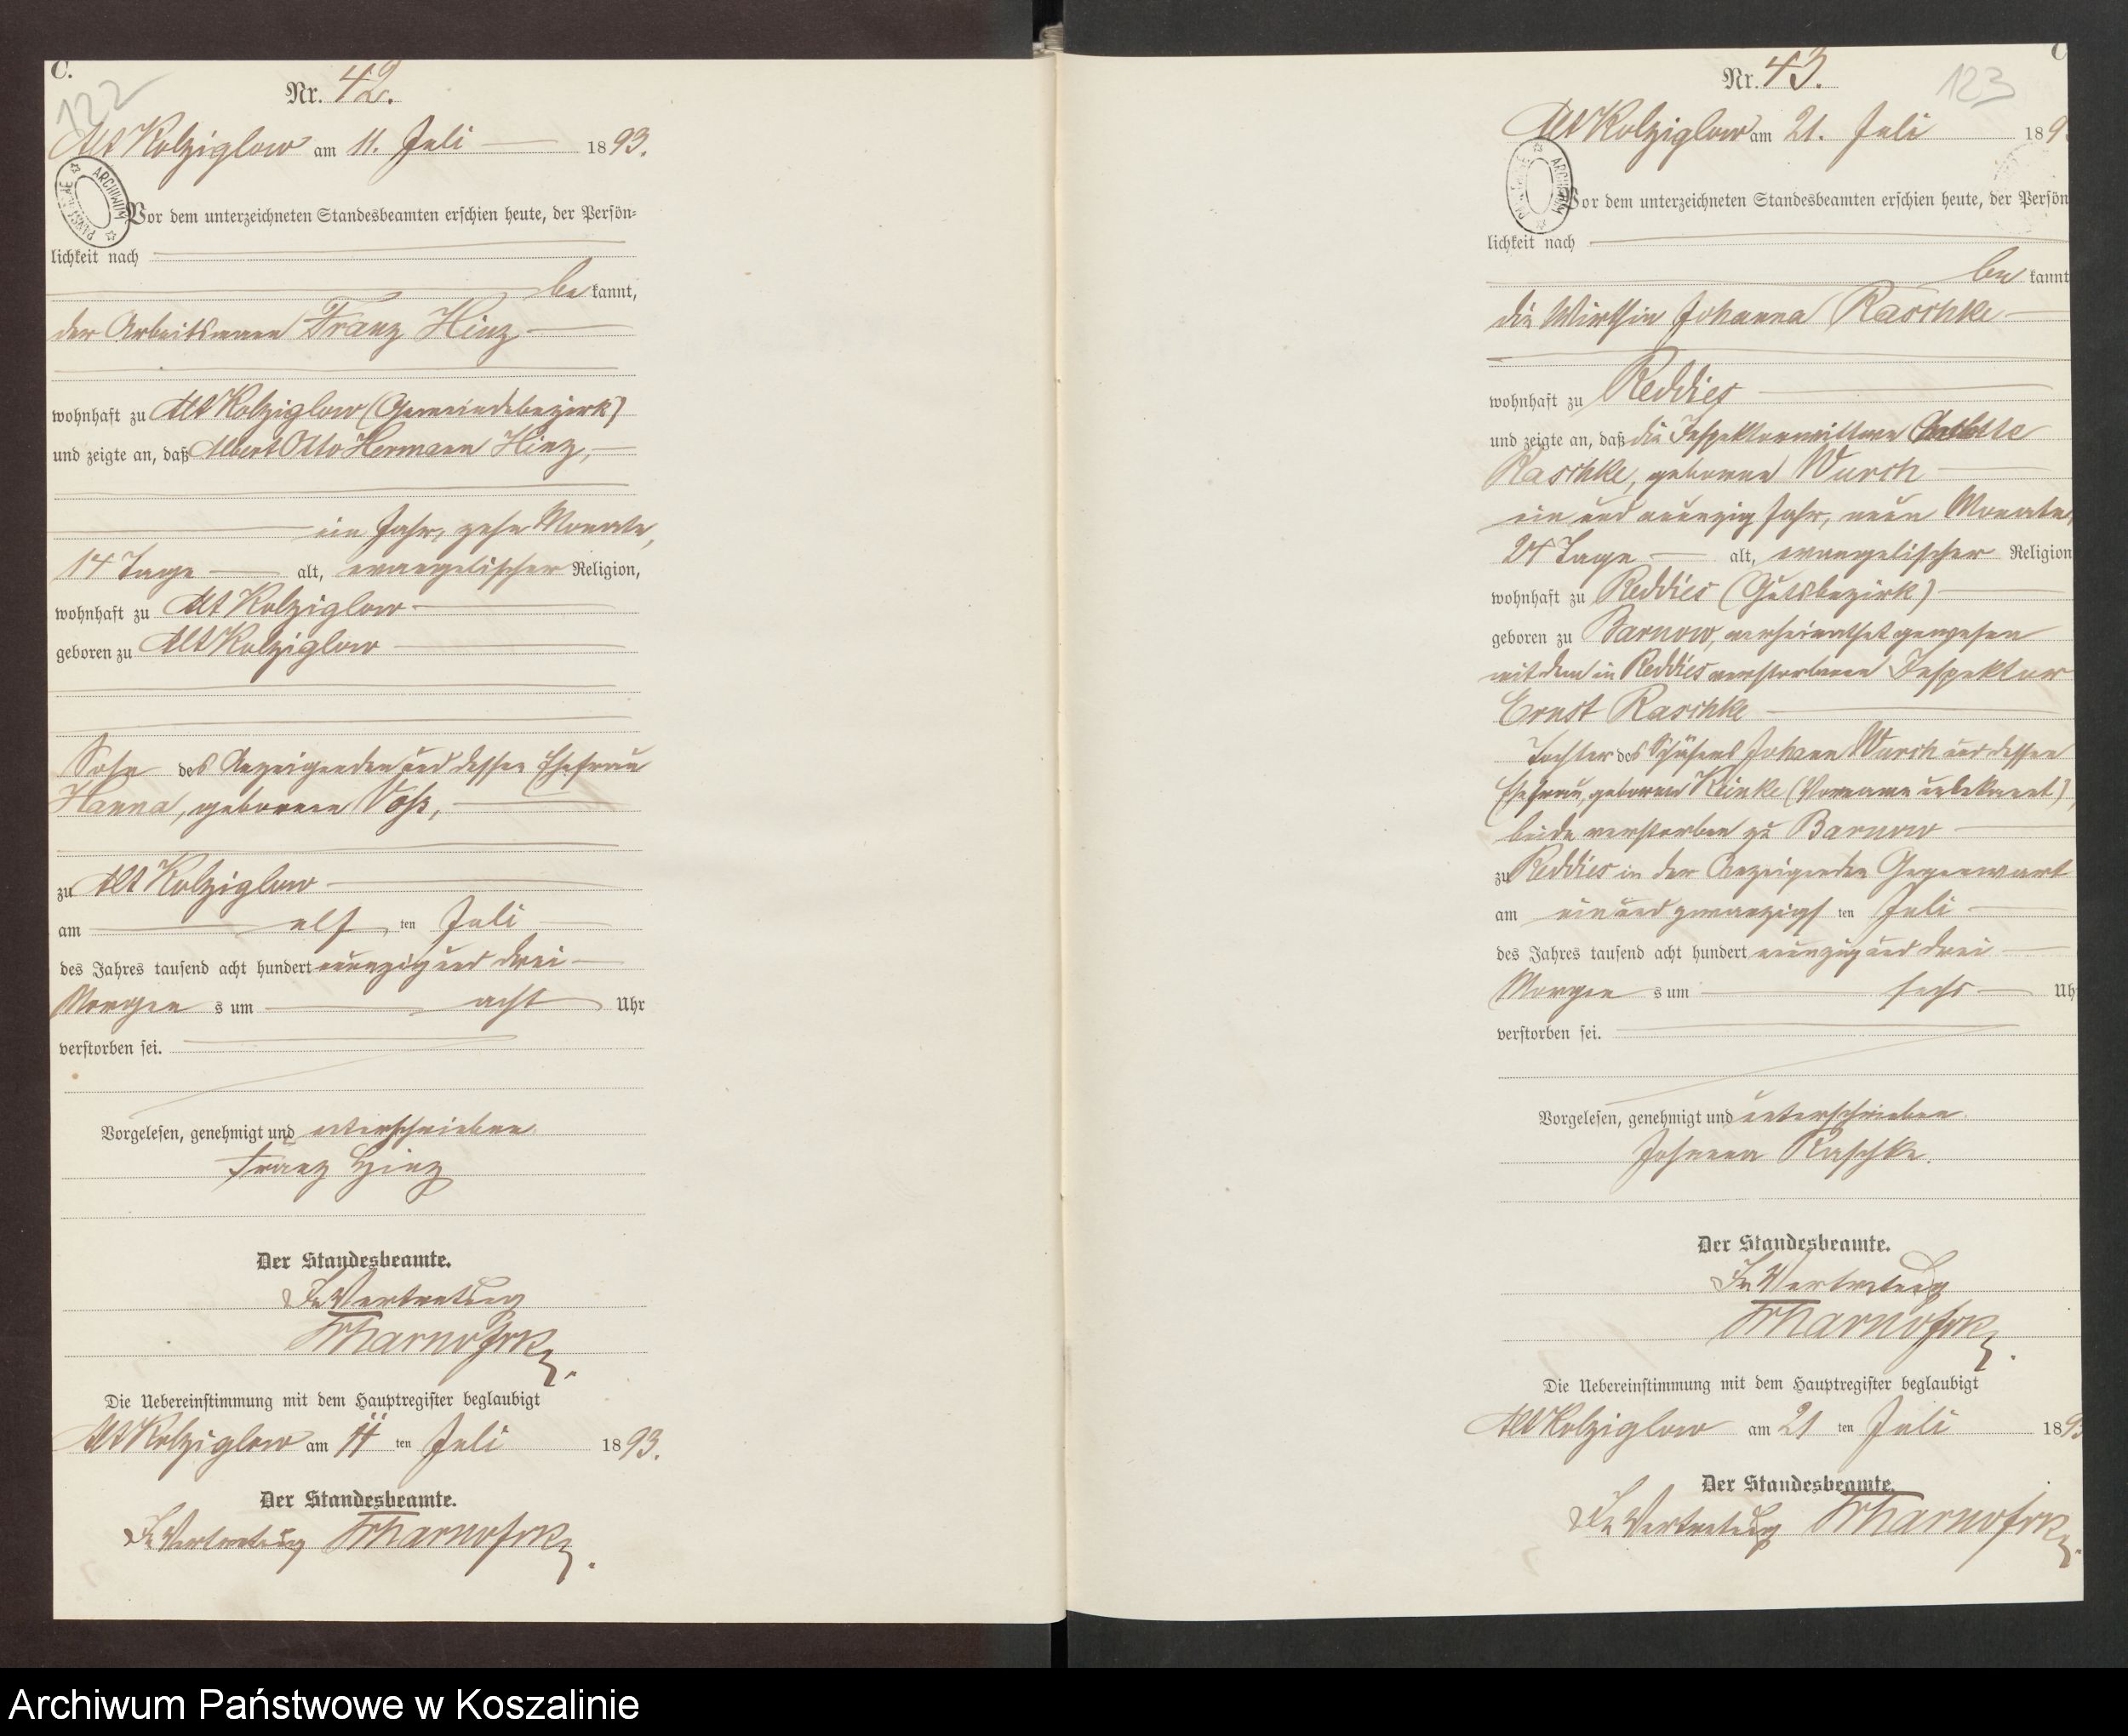 C.
122
Nr. 42.
Alt Kolziglow am 11. Juli 1893.
ARCHIWUM PAŃSTWOWE
Vor dem unterzeichneten Standesbeamten erschien heute, der Persön-
lichkeit nach
be kannt,
der Arbeitsmann Franz Hinz
wohnhaft zu Alt Kolziglow (Gemeindebezirk)
und zeigte an, daß Albert Otto Hermann Hinz,
ein Jahr, zehn Monate,
14 Tage alt, evangelischer Religion,
wohnhaft zu Alt Kolziglow
geboren zu Alt Kolziglow
Sohn des Anzeigenden und dessen Ehefrau
Hanna, geborenen Voß,
zu Alt Kolziglow
am elf ten Juli
des Jahres tausend acht hundert neunzig und drei
Morgen s um acht Uhr
verstorben sei.
Vorgelesen, genehmigt und unterschrieben
Franz Hinz
Der Standesbeamte.
In Vertretung
Die Uebereinstimmung mit dem Hauptregister beglaubigt
Alt Kolziglow am 11 ten Juli 1893.
Der Standesbeamte.
In Vertretung
C
123
Nr. 43.
Alt Kolziglow am 21. Juli 189
ARCHIWUM
Vor dem unterzeichneten Standesbeamten erschien heute, der Persön
lichkeit nach
be kannt
die Wirthin Johanna Raschke
wohnhaft zu Reddies
und zeigte an, daß die Inspektorwittwe
Raschke, geborene Wurch
ein und neunzig Jahr, neun Monate,
24 Tage alt, evangelischer Religion
wohnhaft zu Reddies (Gutsbezirk)
geboren zu Barnow, verheirathet gewesen
mit dem in Reddies verstorbenen Inspektor
Ernst Raschke
Tochter des Schäfers Johann Wurch und dessen
Ehefrau, geborene Reinke (Vorname unbekannt),
beide verstorben zu Barnow
zu Reddies in der Anzeigenden Gegenwart
am ein und zwanzigs ten Juli
des Jahres tausend acht hundert neunzig und drei
Morgen s um sechs Uh
verstorben sei.
Vorgelesen, genehmigt und unterschrieben
Johanna Raschke.
Der Standesbeamte.
In Vertretung
Die Uebereinstimmung mit dem Hauptregister beglaubigt
Alt Kolziglow am 21 ten Juli 1893
Der Standesbeamte.
In Vertretung
Archiwum Państwowe w Koszalinie